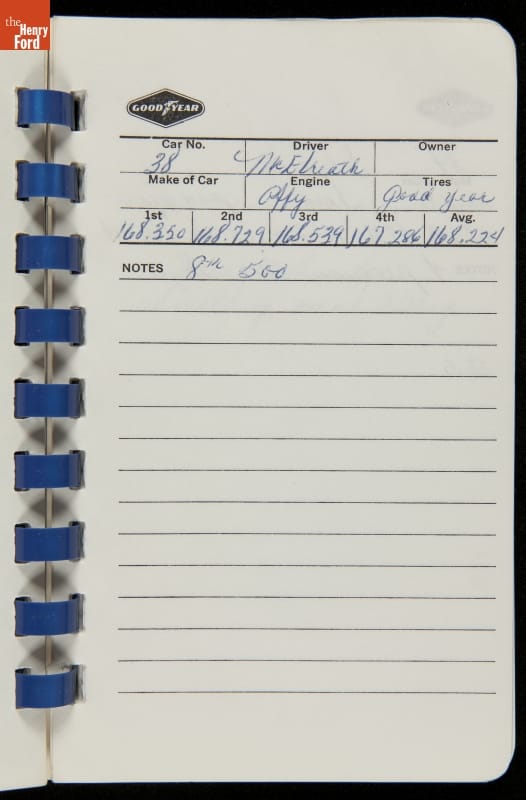 the
Henry
Ford
GOODYEAR
Car No. Driver Owner
38 McElreath
Make of Car Engine Tires
Offy Good Year
1st 2nd 3rd 4th Avg.
168.350 168.729 168.539 167.286 168.224
NOTES 8th 500